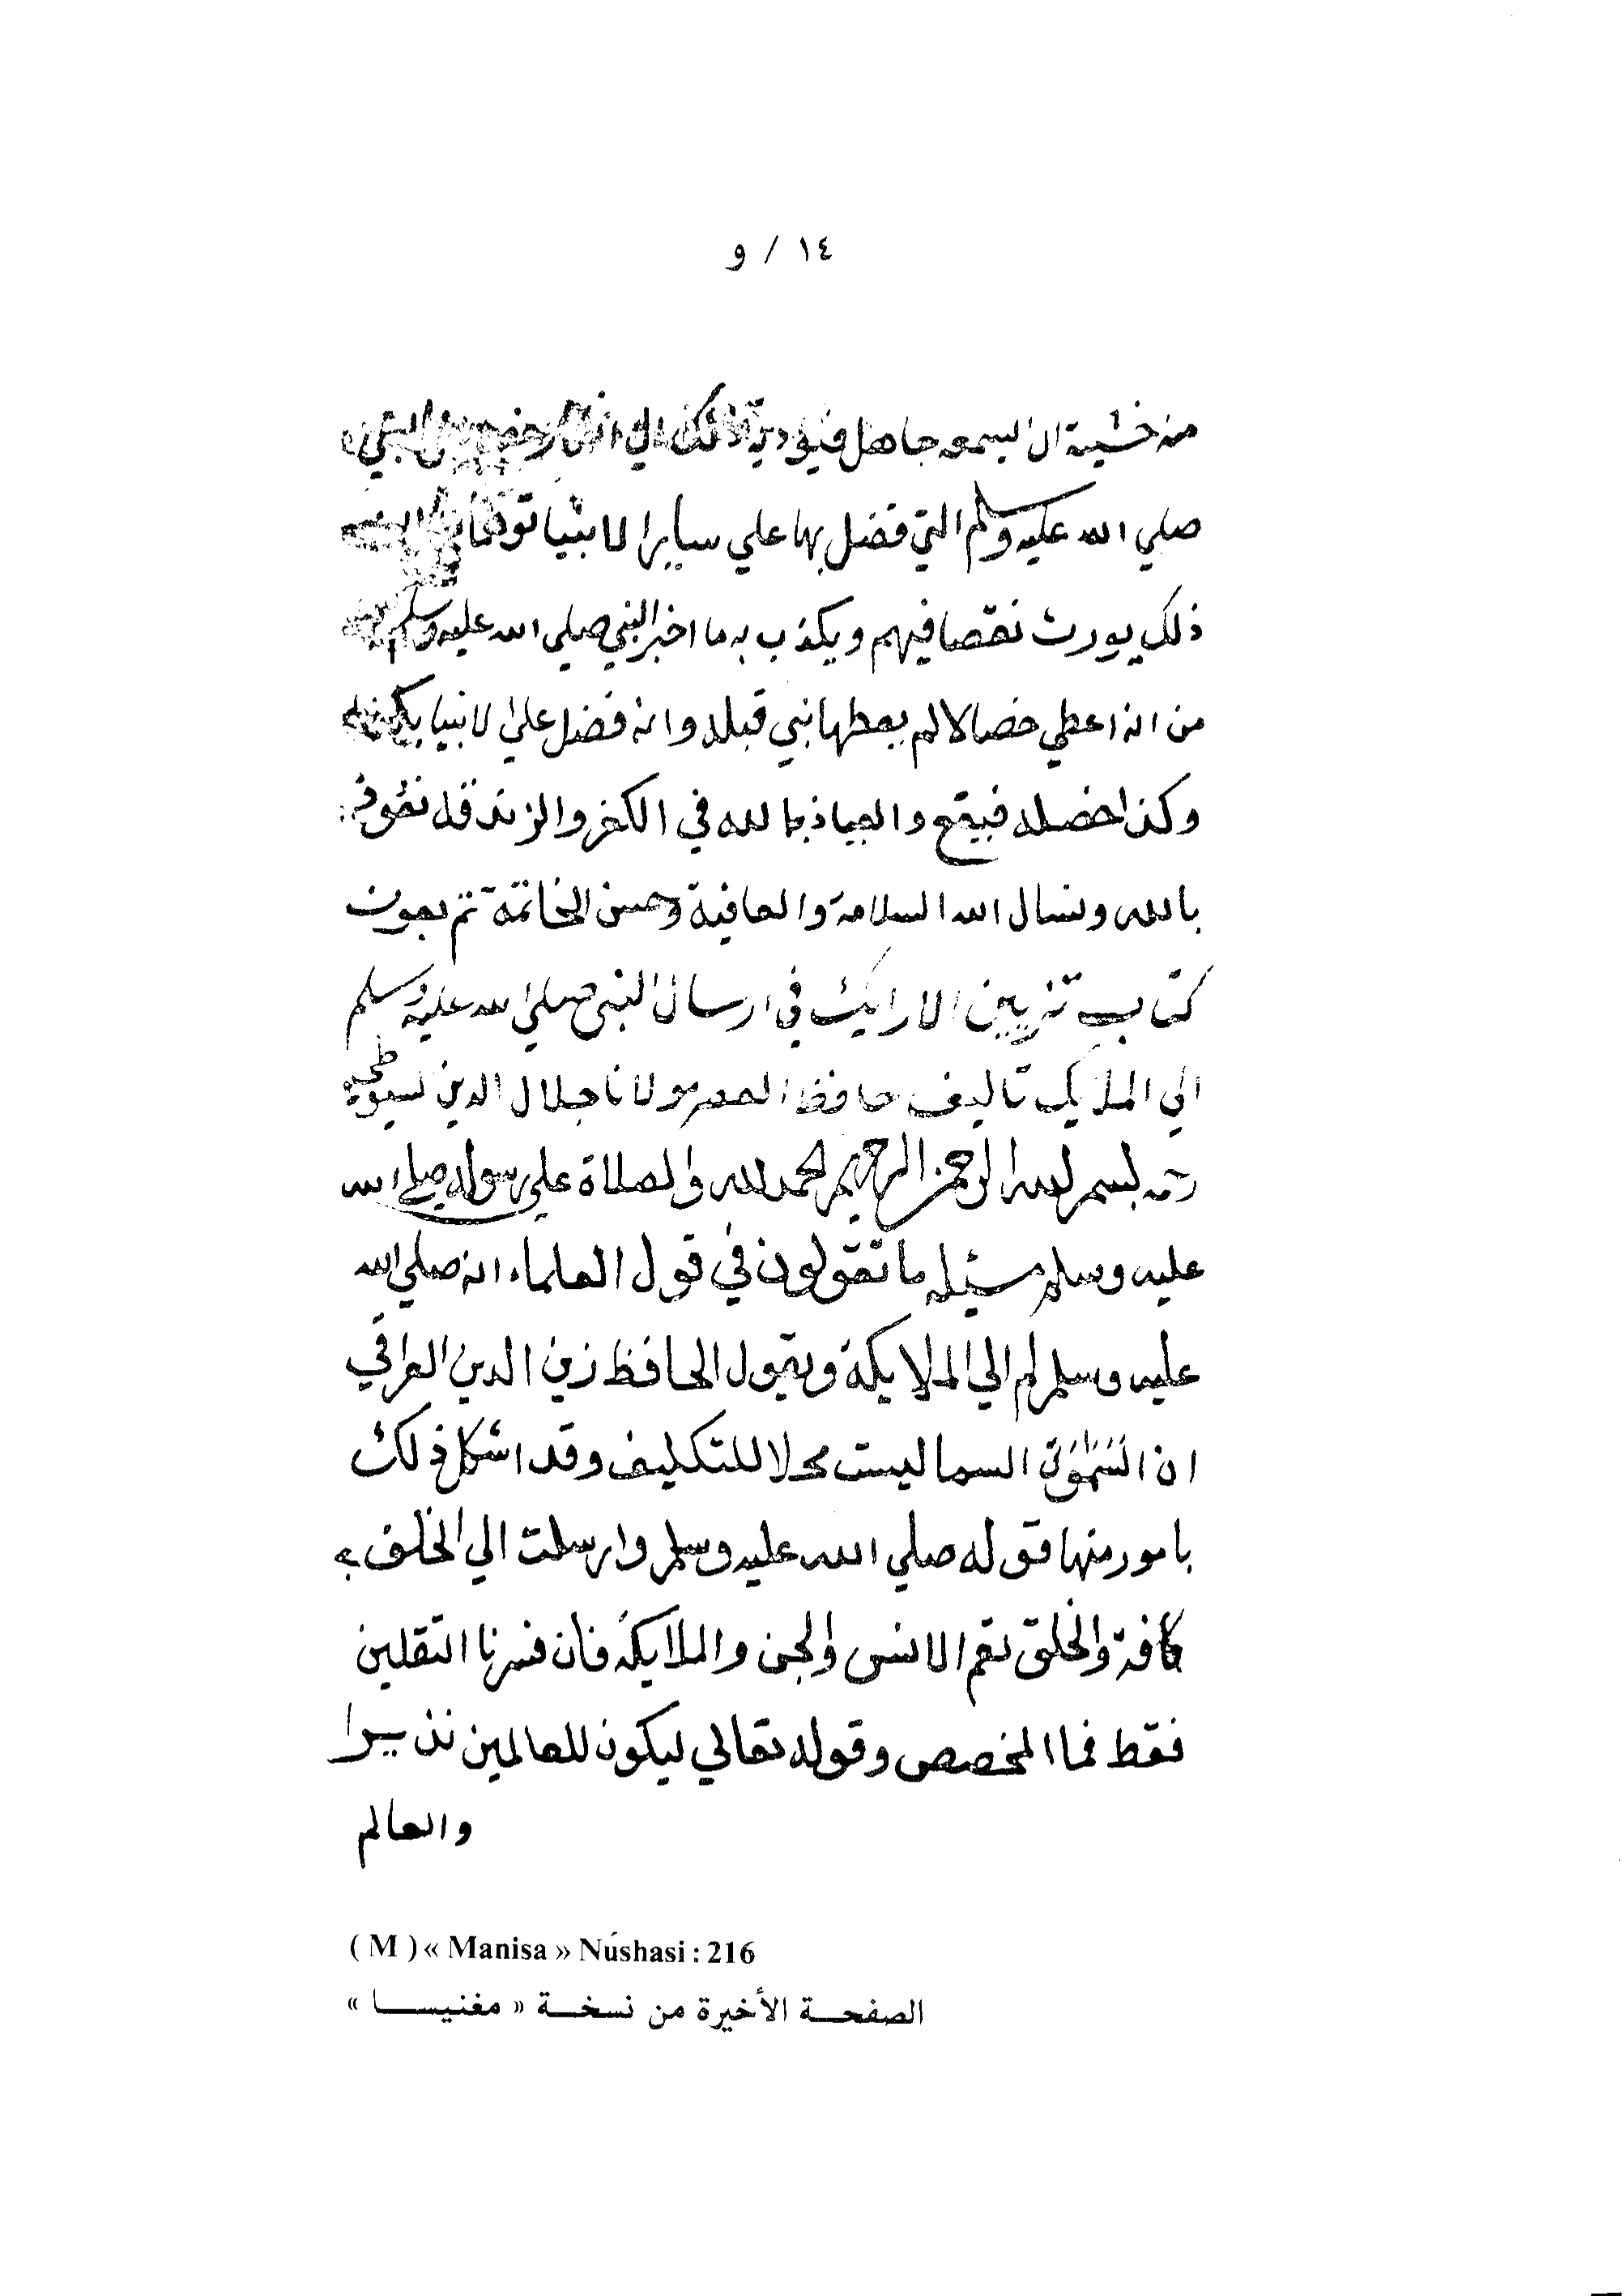 ١٤ / و
منه خشية ان يسمعه جاهل فيؤديه ذلك الي انكار خصايص النبي
صلي الله عليه وسلم التي فضل بها علي ساير الانبيا توهما
ذلك يورث نقصا فيهم ويكذب به ما اخبر النبي صلي الله عليه وسلم
من انه اعطي خصالا لم يعطها نبي قبله وانه فضل علي الانبيا بكذا
وكذا خصله فيقع والعياذ بالله في الكفر والزندقة نعوذ
بالله ونسال الله السلامة والعافية وحسن الخاتمة تم بعون
كتاب تزيين الارايك في ارسال النبي صلي الله عليه وسلم
الي الملايك تاليف حافظ العصر مولانا جلال الدين لسيوطي
رحمه بسم الله الرحمن الرحيم الحمد لله والصلاة علي رسوله صلي الله
عليه وسلم مسئله ما تقولون في قول العلماء انه صلي الله
عليه وسلم لم الي الملايكة وبقول الحافظ زين الدين العراقي
ان السما ليست محلا للتكليف وقد اشكل ذلك
بامور منها قوله صلي الله عليه وسلم وارسلت الي الخلق
كافة والخلق تعم الانس والجن والملايكة فان فسرنا الثقلين
فقط فما المخصص وقوله تعالي ليكون للعالمين نذيرا
والعالم
( M ) « Manisa » Núshasi : 216
الصفحة الأخيرة من نسخة « مغنيسا »